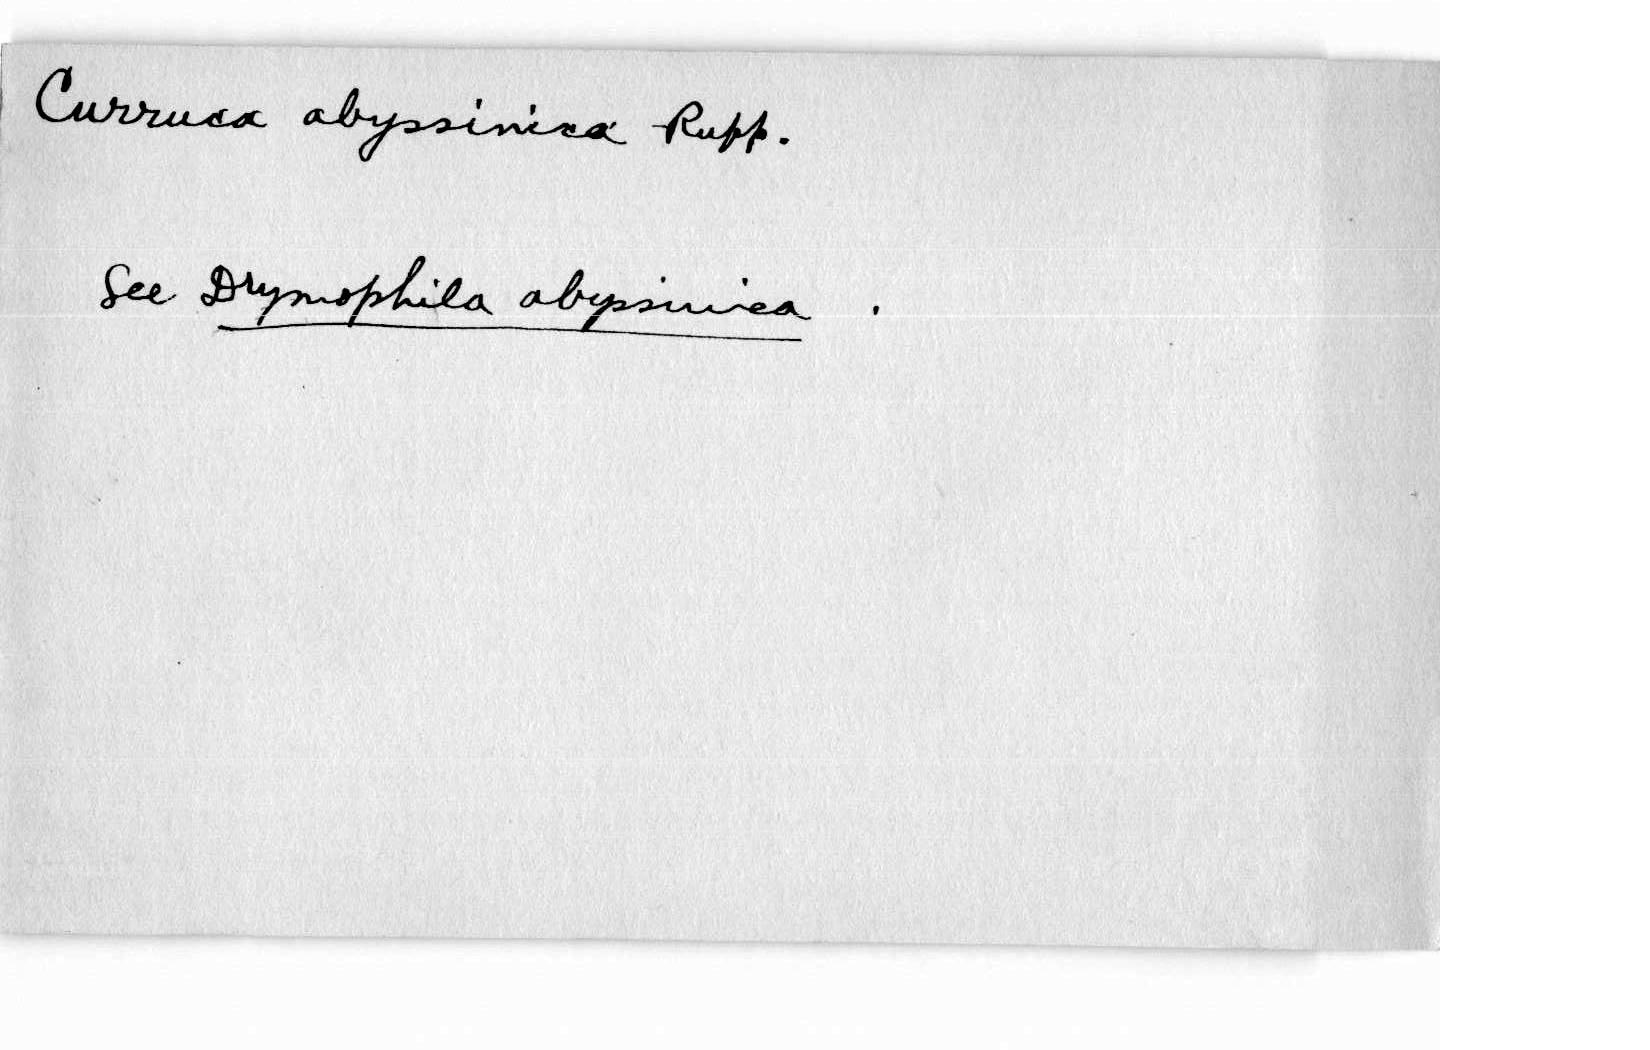 Curruca abyssinica Rupp.
See Drymophila abyssinica .